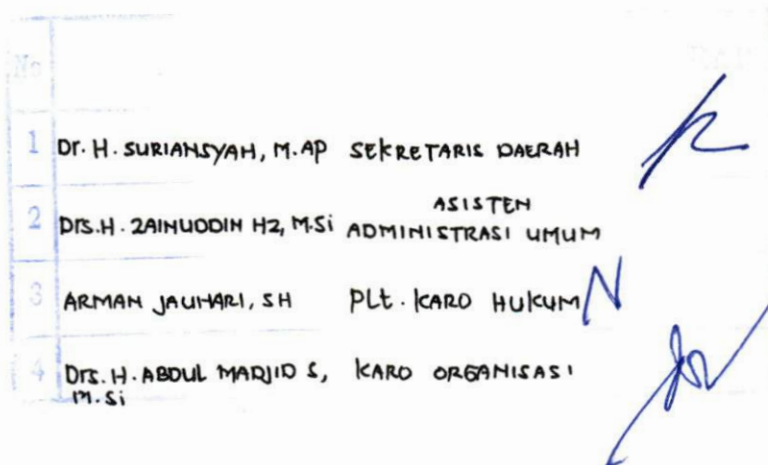 No
1 Dr. H. SURIANSYAH, M.AP SEKRETARIS DAERAH
2 Drs. H. ZAINUDDIN HZ, M.Si ASISTEN
ADMINISTRASI UMUM
3 ARMAN JAUHARI, SH PLt. KARO HUKUM
4 Drs. H. ABDUL MADJID S, KARO ORGANISASI
M.Si